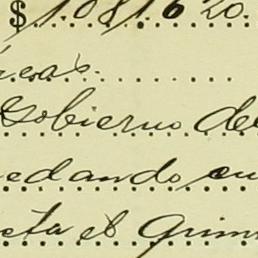 $ 1.081.6 20.
icas
Gobierno de
edando en
cta el Quin